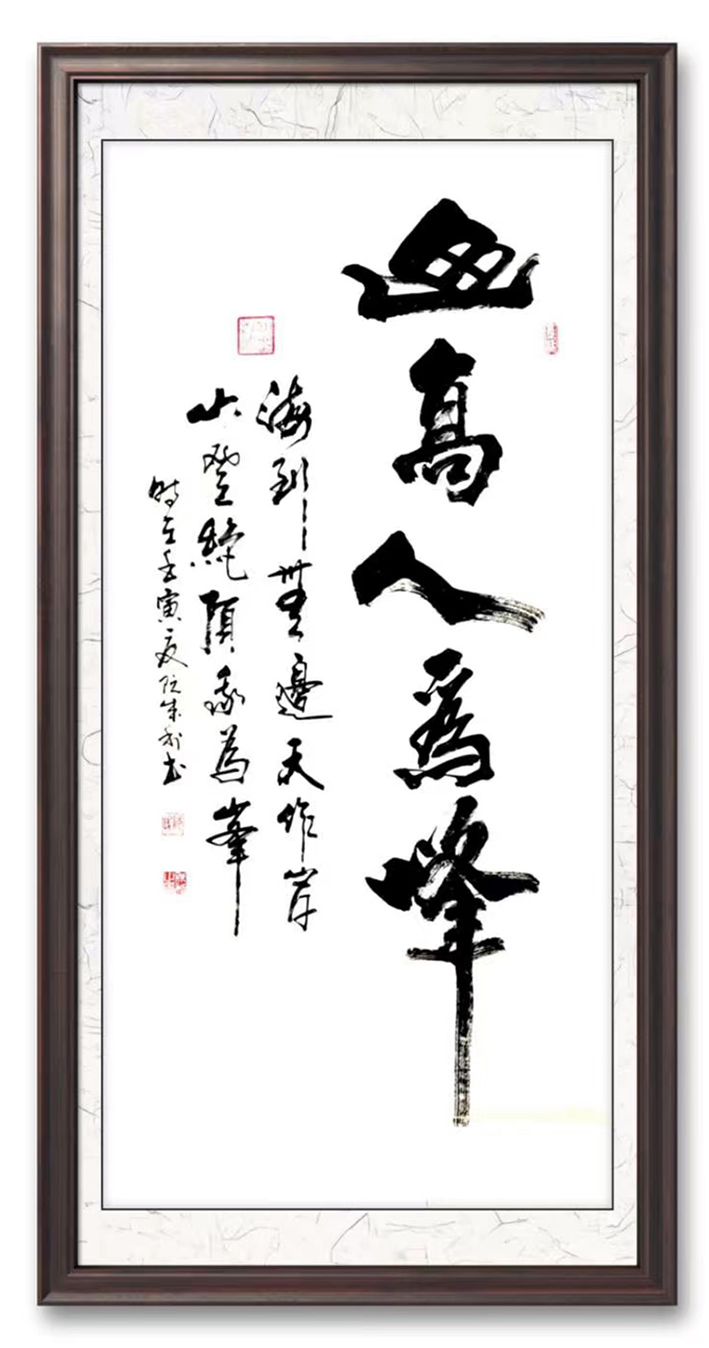 山高人為峰
海到無邊天作岸
山登絕頂我為峯
時在壬寅夏 書